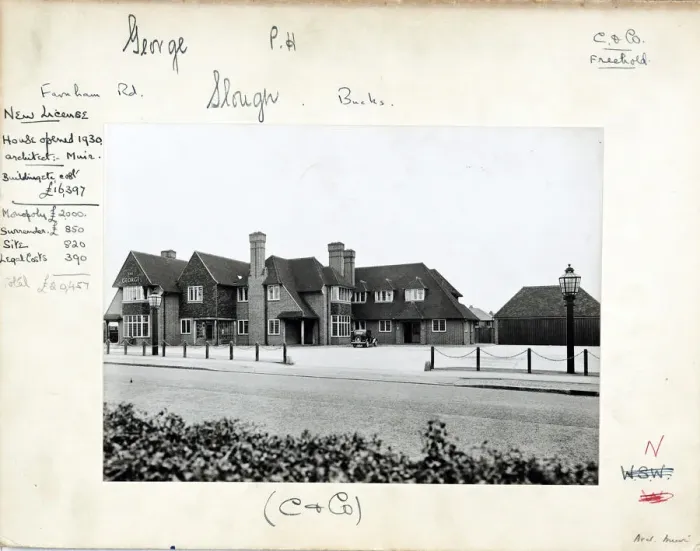 George P.H
C. & Co.
Freehold.
Farnham Rd. Slough. Bucks.
New License
House opened 1930,
architect:- Muir.
Building etc cost
£16,397
Monopoly £ 2,000.
Surrender. £ 850
Site 820
Legal Costs 390
Total £20,457
THE
GEORGE
N
W.S.W.
(C & Co)